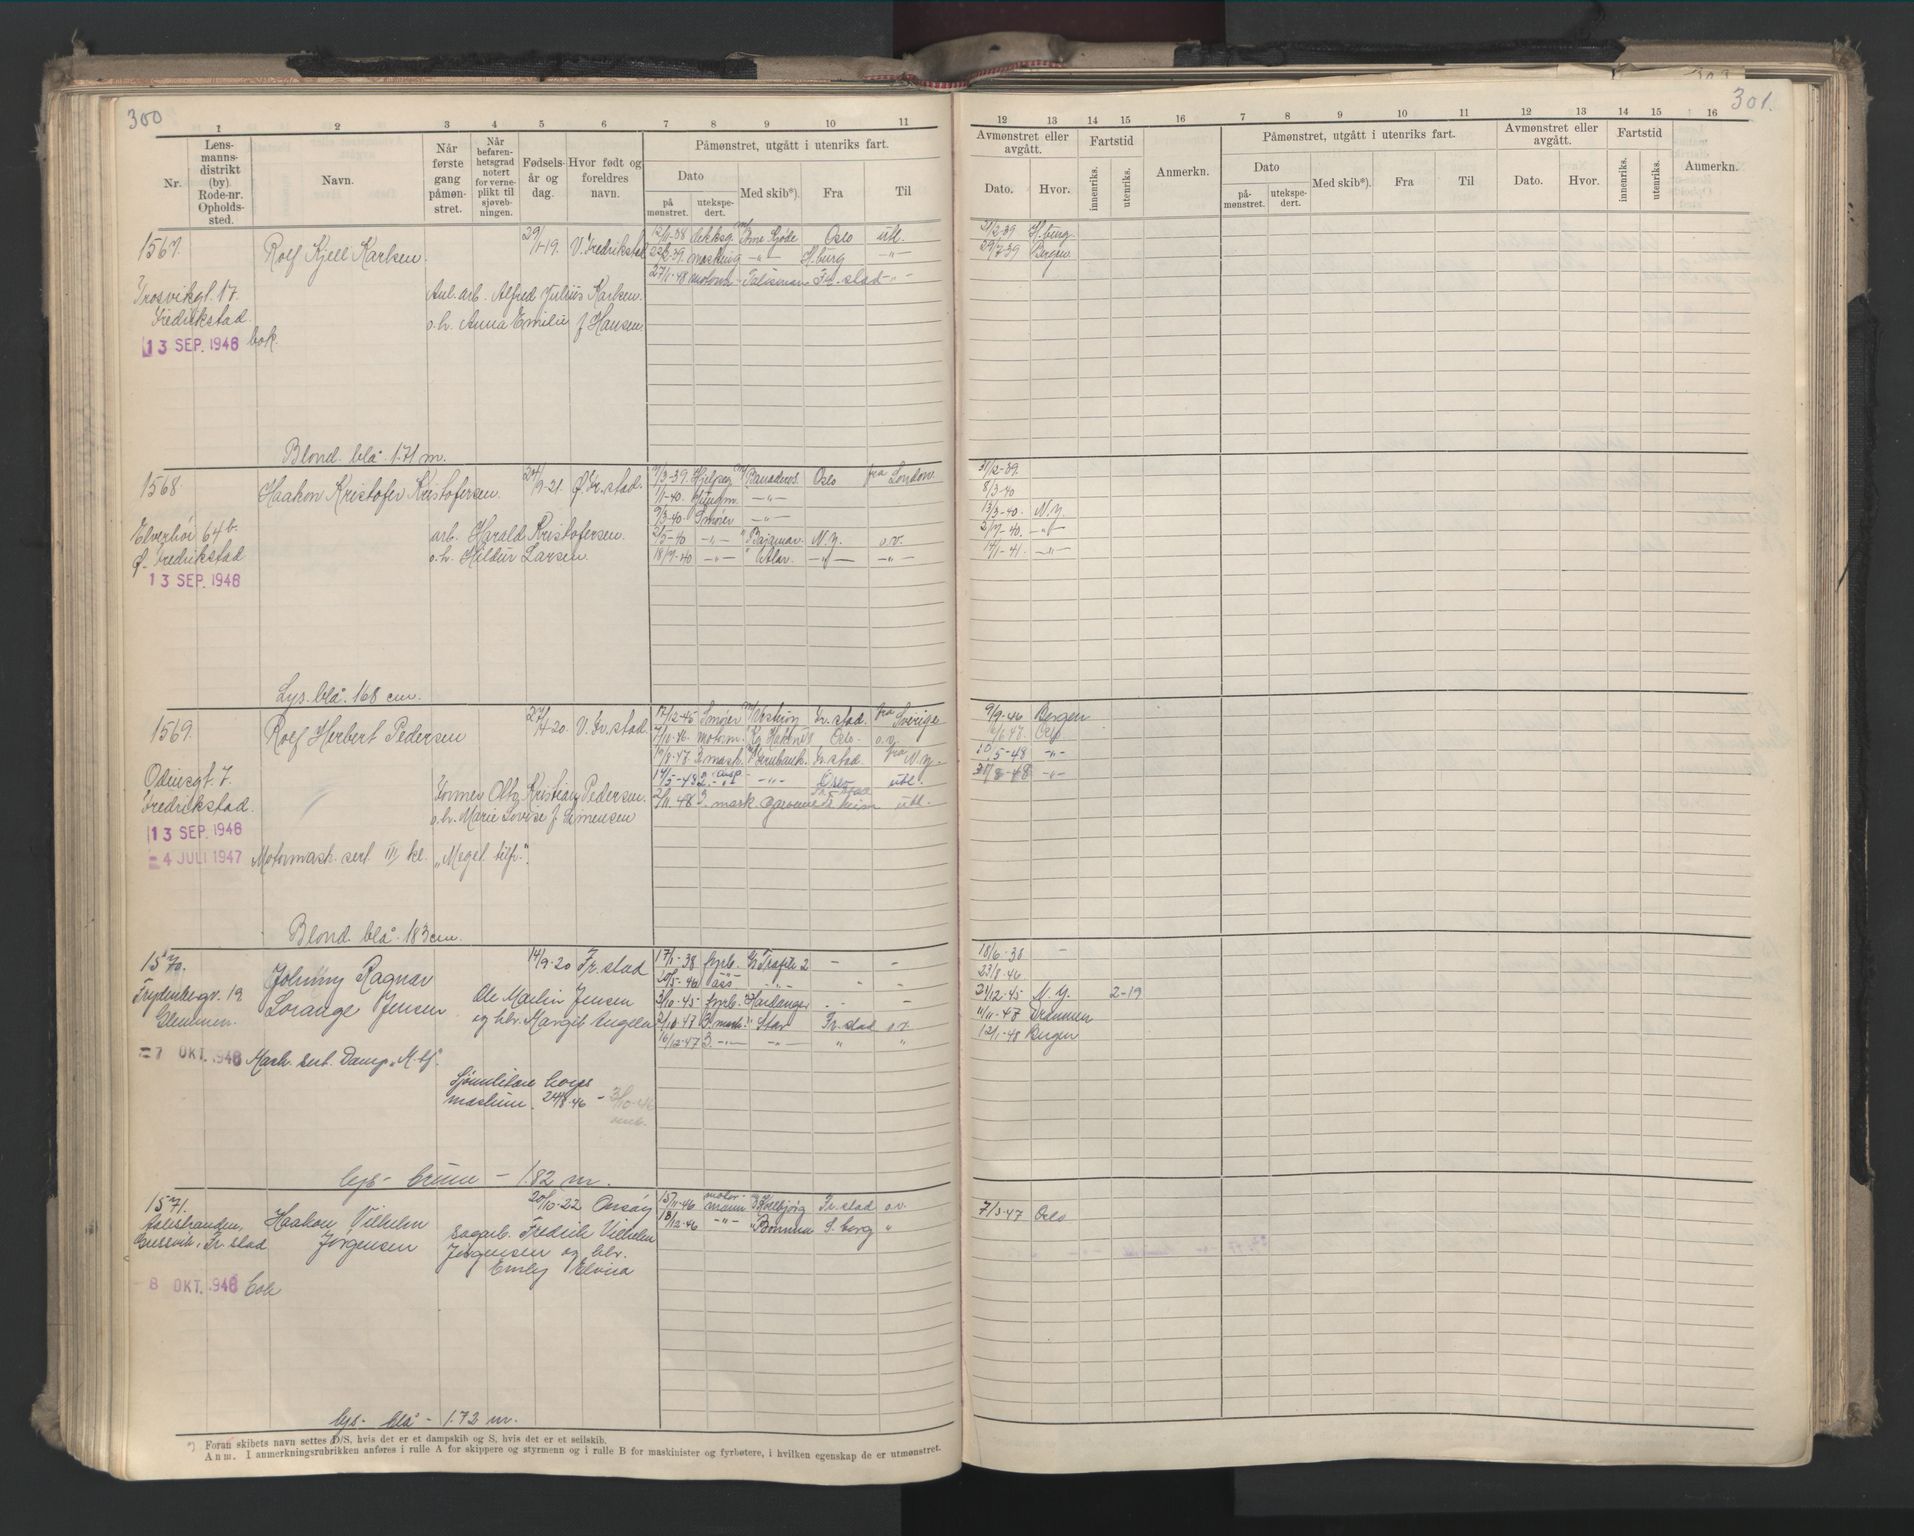 300
1 2 3 4 5 6 7 8 9 10 11
Nr.
Lens-
manns-
distrikt
(by)
Rode-nr.
Opholds-
sted.
Navn.
Når
første
gang
påmøn-
stret.
Når
befaren-
hetsgrad
notert
for verne-
plikt til
sjøvæb-
ningen.
Fødsels-
år og
dag.
Hvor født og
foreldres
navn.
Påmønstret, utgått i utenriks fart.
Dato
på
mønstret.
utekspe-
dert.
Med skib*).
Fra
Til
1567. Rolf Kjell Karlsen. 29/1-19. V. Fredrikstad
12/11-38 dekksg. M/ Ane Skjöde Oslo utl.
22/2-39. masking —"— H.burg —"—
27/11-48 motorm - Talisman Fr.stad -"-
Trosvikgt. 17.
Fredrikstad.
Anl.arb. Alfred Julius Karlsen.
o.h. Anna Emilie f Hansen.
13 SEP. 1946 bok.
Blond. blå. 1.71 m.
1568. Haakon Kristofer Kristofersen. 24/9-21. Ø. Fr.stad.
7/3-39. Hjelpeg M/ Banaderos. Oslo fra London.
1/1-40. —"—
9/3-40. Smører —"—
2/5-40 —"— " Bajamar. N.Y. o.v.
18/7-40 —"— " —"— —"—
Elverhöi 64b.
Ø. Fredrikstad
arb. Harald Kristofersen.
o.h. Hildur Larsen.
13 SEP. 1946
Lys. blå. 168 cm.
1569. Rolf Herbert Pedersen 27/4-20. V. Fr.stad.
17/12-45 Smører M/ Fr.stad. fra Sverige
7/10-46. motorm. Oslo. o.v.
19/8-47 3 mask. Fr.stad fra N.Y.
14/5-48 2. -"- -"- Oslo utl.
2/11-48 3. mask utl.
Odinsgt. 7.
Fredrikstad.
Former Otto Kristian Pedersen.
o.h. Marie Lovise f. Simensen
13 SEP. 1946
= 4 JULI 1947 Motormask. sert. III kl. „Meget tilfr."
Blond. blå. 183 cm.
1570. Johnny Ragnar
Lorange Jensen 14/9-20 Fr.stad
17/1-38 fyrb. Trafik 2 - -
20/5-46 ass - " - " "
3/10-45 fyrb. " Hardanger - -
2/10-47 3 mask. " Star Fr.stad o.v.
16/12-47 3. -"- -"- " "
Frydenbergv. 19
Glemmen.
Ole Martin Jensen
og hlr. Margit Angela
= 7 OKT. 1946 Mask. sert. Damp „M.tf".
Sjömilitære korps
maskinm. 24/8-46 -
lys - brune - 1.82 m.
1571. Haakon Vilhelm
Jørgensen 20/10-22 Onsøy
15/11-46 motor-
mann Kollbjørg Fr.stad o.v.
18/12-46 -"- " S.borg "
Gressvik, Fr.stad
sagarb. Fredrik Vilhelm
Jørgensen og hlr.
Emly Elvira
8 OKT. 1946 bok
lys - blå - 1.72 m.
*) Foran skibets navn settes D/S, hvis det er et dampskib og S, hvis det er et seilskib.
Anm. I anmerkningsrubrikken anføres i rulle A for skippere og styrmenn og i rulle B for maskinister og fyrbøtere, i hvilken egenskap de er utmønstret.
301.
12 13 14 15 16 7 8 9 10 11 12 13 14 15 16
Avmønstret eller
avgått.
Dato.
Hvor.
Fartstid
innenriks.
utenriks.
Anmerkn.
Påmønstret, utgått i utenriks fart.
Dato
på-
mønstret.
utekspe-
dert.
Med skib*).
Fra
Til
Avmønstret eller
avgått.
Dato.
Hvor.
Fartstid
innenriks.
utenriks.
Anmerkn.
21/2-39 H.burg.
29/7-39 Bergen.
31/2-39.
8/3-40
13/3-40. N.Y.
2/7-40. —"—
14/1-41. —"—
9/9-46 Bergen
6/6-47. Oslo
10/5-48 -"-
31/8-48 -"-
18/6-38 -
23/8-46
21/12-45 N.Y. 2-19
11/11-47 Drammen
12/1-48 Bergen
7/3-47 Oslo